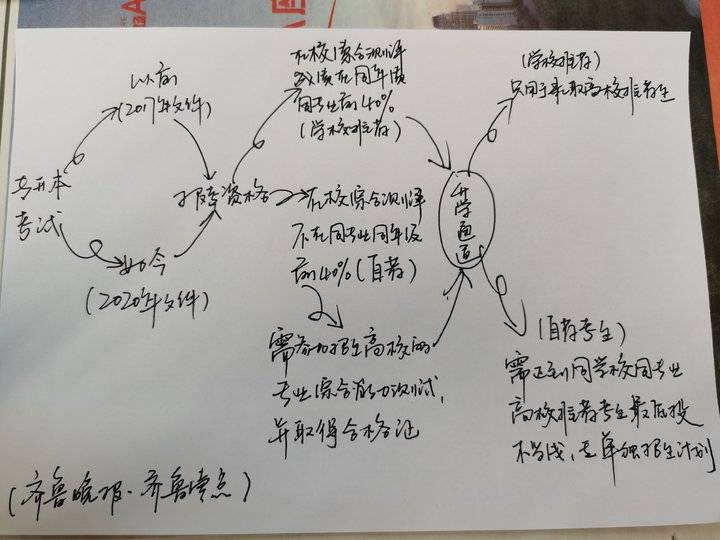 专升本
考试
以前
(2017年文件)
如今
(2020年文件)
报考资格
在校综合测评
成绩在同年级
同专业前40%
(学校推荐)
在校综合测评
不在同专业同年级
前40%(自荐)
需参加招生高校的
专业综合能力测试,
并取得合格证
升学通道
(学校推荐)
只用于录取高校推荐生
(自荐考生)
需达到同学校同专业
高校推荐考生最低投
档线,走单独招生计划
(齐鲁晚报·齐鲁壹点)